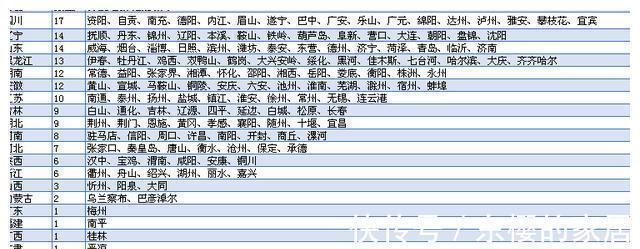 川 17 资阳、自贡、南充、德阳、内江、眉山、遂宁、巴中、广安、乐山、广元、绵阳、达州、泸州、雅安、攀枝花、宜宾
辽宁 14 抚顺、丹东、锦州、辽阳、本溪、鞍山、铁岭、葫芦岛、阜新、营口、大连、朝阳、盘锦、沈阳
山东 14 威海、烟台、淄博、日照、滨州、潍坊、泰安、东营、德州、济宁、菏泽、青岛、临沂、济南
龙江 13 伊春、牡丹江、鸡西、双鸭山、鹤岗、大兴安岭、绥化、黑河、佳木斯、七台河、哈尔滨、大庆、齐齐哈尔
湖南 12 常德、益阳、张家界、湘潭、怀化、邵阳、湘西、岳阳、娄底、衡阳、株洲、永州
安徽 12 黄山、宣城、马鞍山、铜陵、安庆、六安、池州、淮南、芜湖、滁州、宿州、蚌埠
江苏 10 南通、泰州、扬州、盐城、镇江、淮安、徐州、常州、无锡、连云港
吉林 9 白山、通化、吉林、辽源、四平、延边、白城、松原、长春
湖北 9 荆州、荆门、恩施、黄冈、孝感、襄阳、随州、十堰、宜昌
河南 8 驻马店、信阳、周口、许昌、南阳、开封、商丘、漯河
河北 7 张家口、秦皇岛、唐山、衡水、沧州、保定、承德
陕西 6 汉中、宝鸡、渭南、咸阳、安康、铜川
浙江 6 衢州、舟山、绍兴、湖州、丽水、嘉兴
山西 3 忻州、阳泉、大同
内蒙古 2 乌兰察布、巴彦淖尔
广东 1 梅州
福建 1 南平
广西 1 桂林
1
快传号 / 东樱的家居